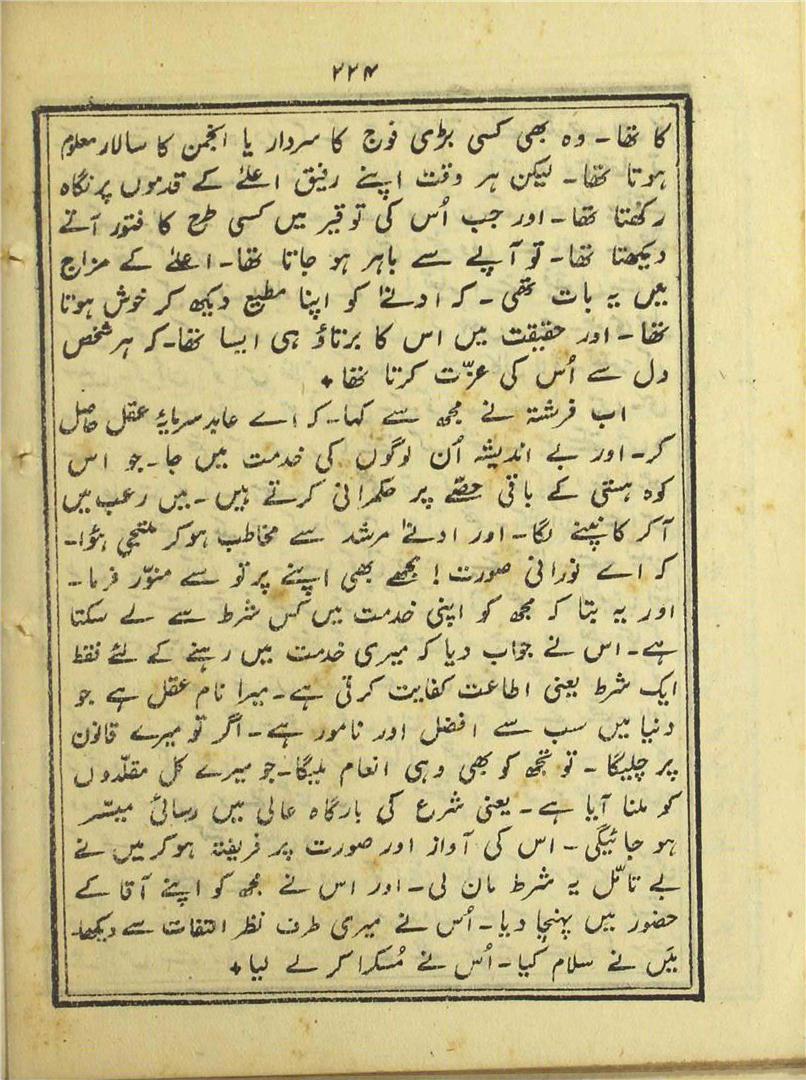 ۲۲۴
کا تھا۔ وہ بھی کسی بڑی فوج کا سردار یا انجمن کا سالار معلوم
ہوتا تھا۔ لیکن ہر وقت اپنے رفیق اعلےٰ کے قدموں پر نگاہ
رکھتا تھا۔ اور جب اُس کی توقیر میں کسی طرح کا فتور آتے
دیکھتا تھا۔ تو آپے سے باہر ہو جاتا تھا۔ اعلےٰ کے مزاج
میں یہ بات تھی۔ کہ ادنےٰ کو اپنا مطیع دیکھ کر خوش ہوتا
تھا۔ اور حقیقت میں اس کا برتاؤ ہی ایسا تھا۔ کہ ہر شخص
دل سے اُس کی عزّت کرتا تھا ٭
اب فرشتہ نے مجھ سے کہا۔ کہ اے عابد سرمایۂ عقل حاصل
کر۔ اور بے اندیشہ اُن لوگوں کی خدمت میں جا۔ جو اس
کوہ ہستی کے باقی حصّے پر حکمرانی کرتے ہیں۔ میں رعب میں
آکر کانپنے لگا۔ اور ادنےٰ مرشد سے مخاطب ہوکر ملتجی ہؤا۔
کہ اے نورانی صورت! مجھے بھی اپنے پرتو سے منوّر فرما۔
اور یہ بتا کہ مجھ کو اپنی خدمت میں کس شرط سے لے سکتا
ہے۔ اس نے جواب دیا کہ میری خدمت میں رہنے کے لئے فقط
ایک شرط یعنی اطاعت کفایت کرتی ہے۔ میرا نام عقل ہے جو
دنیا میں سب سے افضل اور نامور ہے۔ اگر تو میرے قانون
پر چلیگا۔ تو تجھ کو بھی وہی انعام ملیگا۔ جو میرے کل مقلّدوں
کو ملنا آیا ہے۔ یعنی شرع کی بارگاہ عالی میں رسائی میسّر
ہو جائیگی۔ اس کی آواز اور صورت پر فریفتہ ہوکر میں نے
بے تامّل یہ شرط مان لی۔ اور اس نے مجھ کو اپنے آقا کے
حضور میں پہنچا دیا۔ اُس نے میری طرف نظر التفات سے دیکھا۔
میَں نے سلام کیا۔ اُس نے مُسکرا کر لے لیا ٭